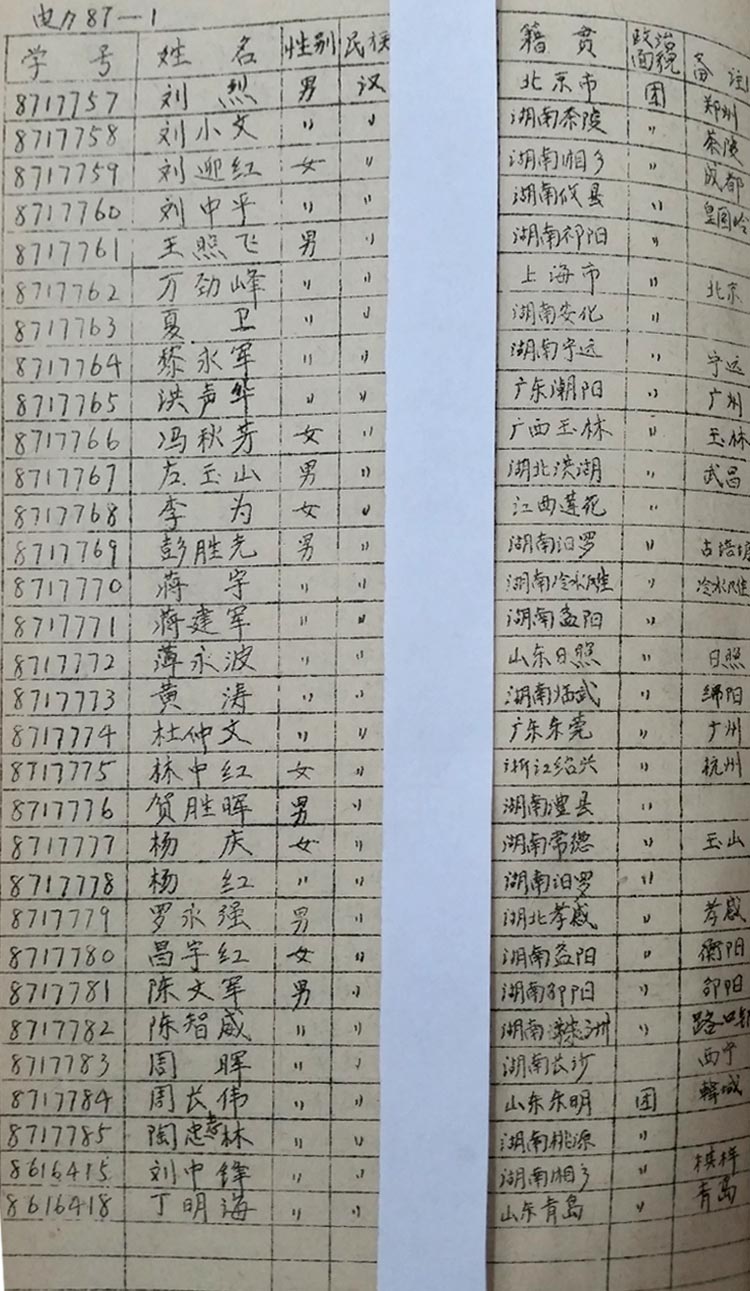 电力87-1
学号 姓名 性别 民族 籍贯 政治面貌 备注
8717757 刘烈 男 汉 北京市 团 郑州
8717758 刘小文 〃 〃 湖南茶陵 〃 茶陵
8717759 刘迎红 女 〃 湖南湘乡 〃 成都
8717760 刘中平 〃 〃 湖南攸县 〃 皇图岭
8717761 王照飞 男 〃 湖南祁阳 〃
8717762 万劲峰 〃 〃 上海市 〃 北京
8717763 夏卫 〃 〃 湖南安化 〃
8717764 黎永军 〃 〃 湖南宁远 〃 宁远
8717765 洪声华 〃 〃 广东潮阳 〃 广州
8717766 冯秋芳 女 〃 广西玉林 〃 玉林
8717767 左玉山 男 〃 湖北洪湖 〃 武昌
8717768 李为 女 〃 江西莲花 〃
8717769 彭胜先 男 〃 湖南汨罗 〃 古培塘
8717770 蒋宇 〃 〃 湖南冷水滩 〃 冷水滩
8717771 蒋建军 〃 〃 湖南益阳 〃
8717772 薄永波 〃 〃 山东日照 〃 日照
8717773 黄涛 〃 〃 湖南临武 〃 绵阳
8717774 杜仲文 〃 〃 广东东莞 〃 广州
8717775 林中红 女 〃 浙江绍兴 〃 杭州
8717776 贺胜晖 男 〃 湖南澧县 〃
8717777 杨庆 女 〃 湖南常德 〃 玉山
8717778 杨红 〃 〃 湖南汨罗 〃
8717779 罗永强 男 〃 湖北孝感 〃 孝感
8717780 昌宇红 女 〃 湖南益阳 〃 衡阳
8717781 陈文军 男 〃 湖南邵阳 〃 邵阳
8717782 陈智威 〃 〃 湖南株洲 〃 路口铺
8717783 周晖 〃 〃 湖南长沙 西宁
8717784 周长伟 〃 〃 山东东明 团 韩城
8717785 陶忠林 〃 〃 湖南桃源 〃
8616415 刘中锋 〃 〃 湖南湘乡 〃 棋梓
8616418 丁明海 〃 〃 山东青岛 〃 青岛